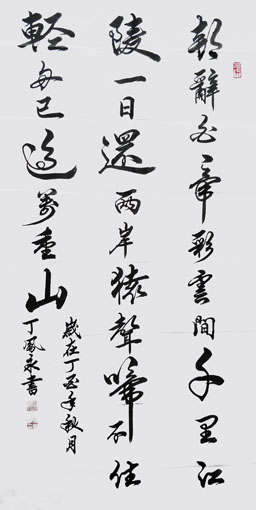 朝辭白帝彩雲間千里江
陵一日還兩岸猿聲啼不住
輕舟已過萬重山
歲在丁酉年秋月
丁鳳永書